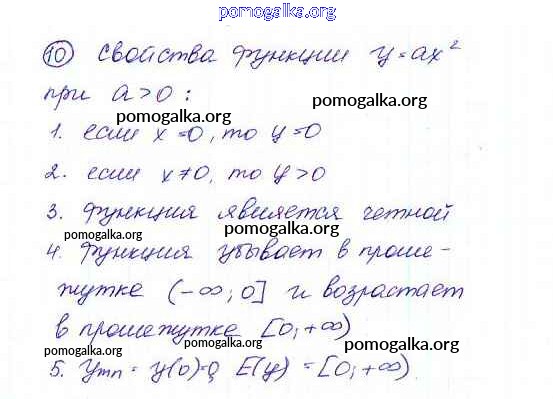 pomogalka.org
10 Свойства функции y = ax²
при a>0:
pomogalka.org
pomogalka.org
1. если x =0, то y=0
pomogalka.org
2. если x≠0, то y>0
3. Функция является четной
pomogalka.org
pomogalka.org
4. Функция убывает в проме-
жутке (-∞; 0] и возрастает
в промежутке [0; +∞)
pomogalka.org
pomogalka.org
5. Ymin = y(0)=0, E(y) = [0; +∞)
pomogalka.org